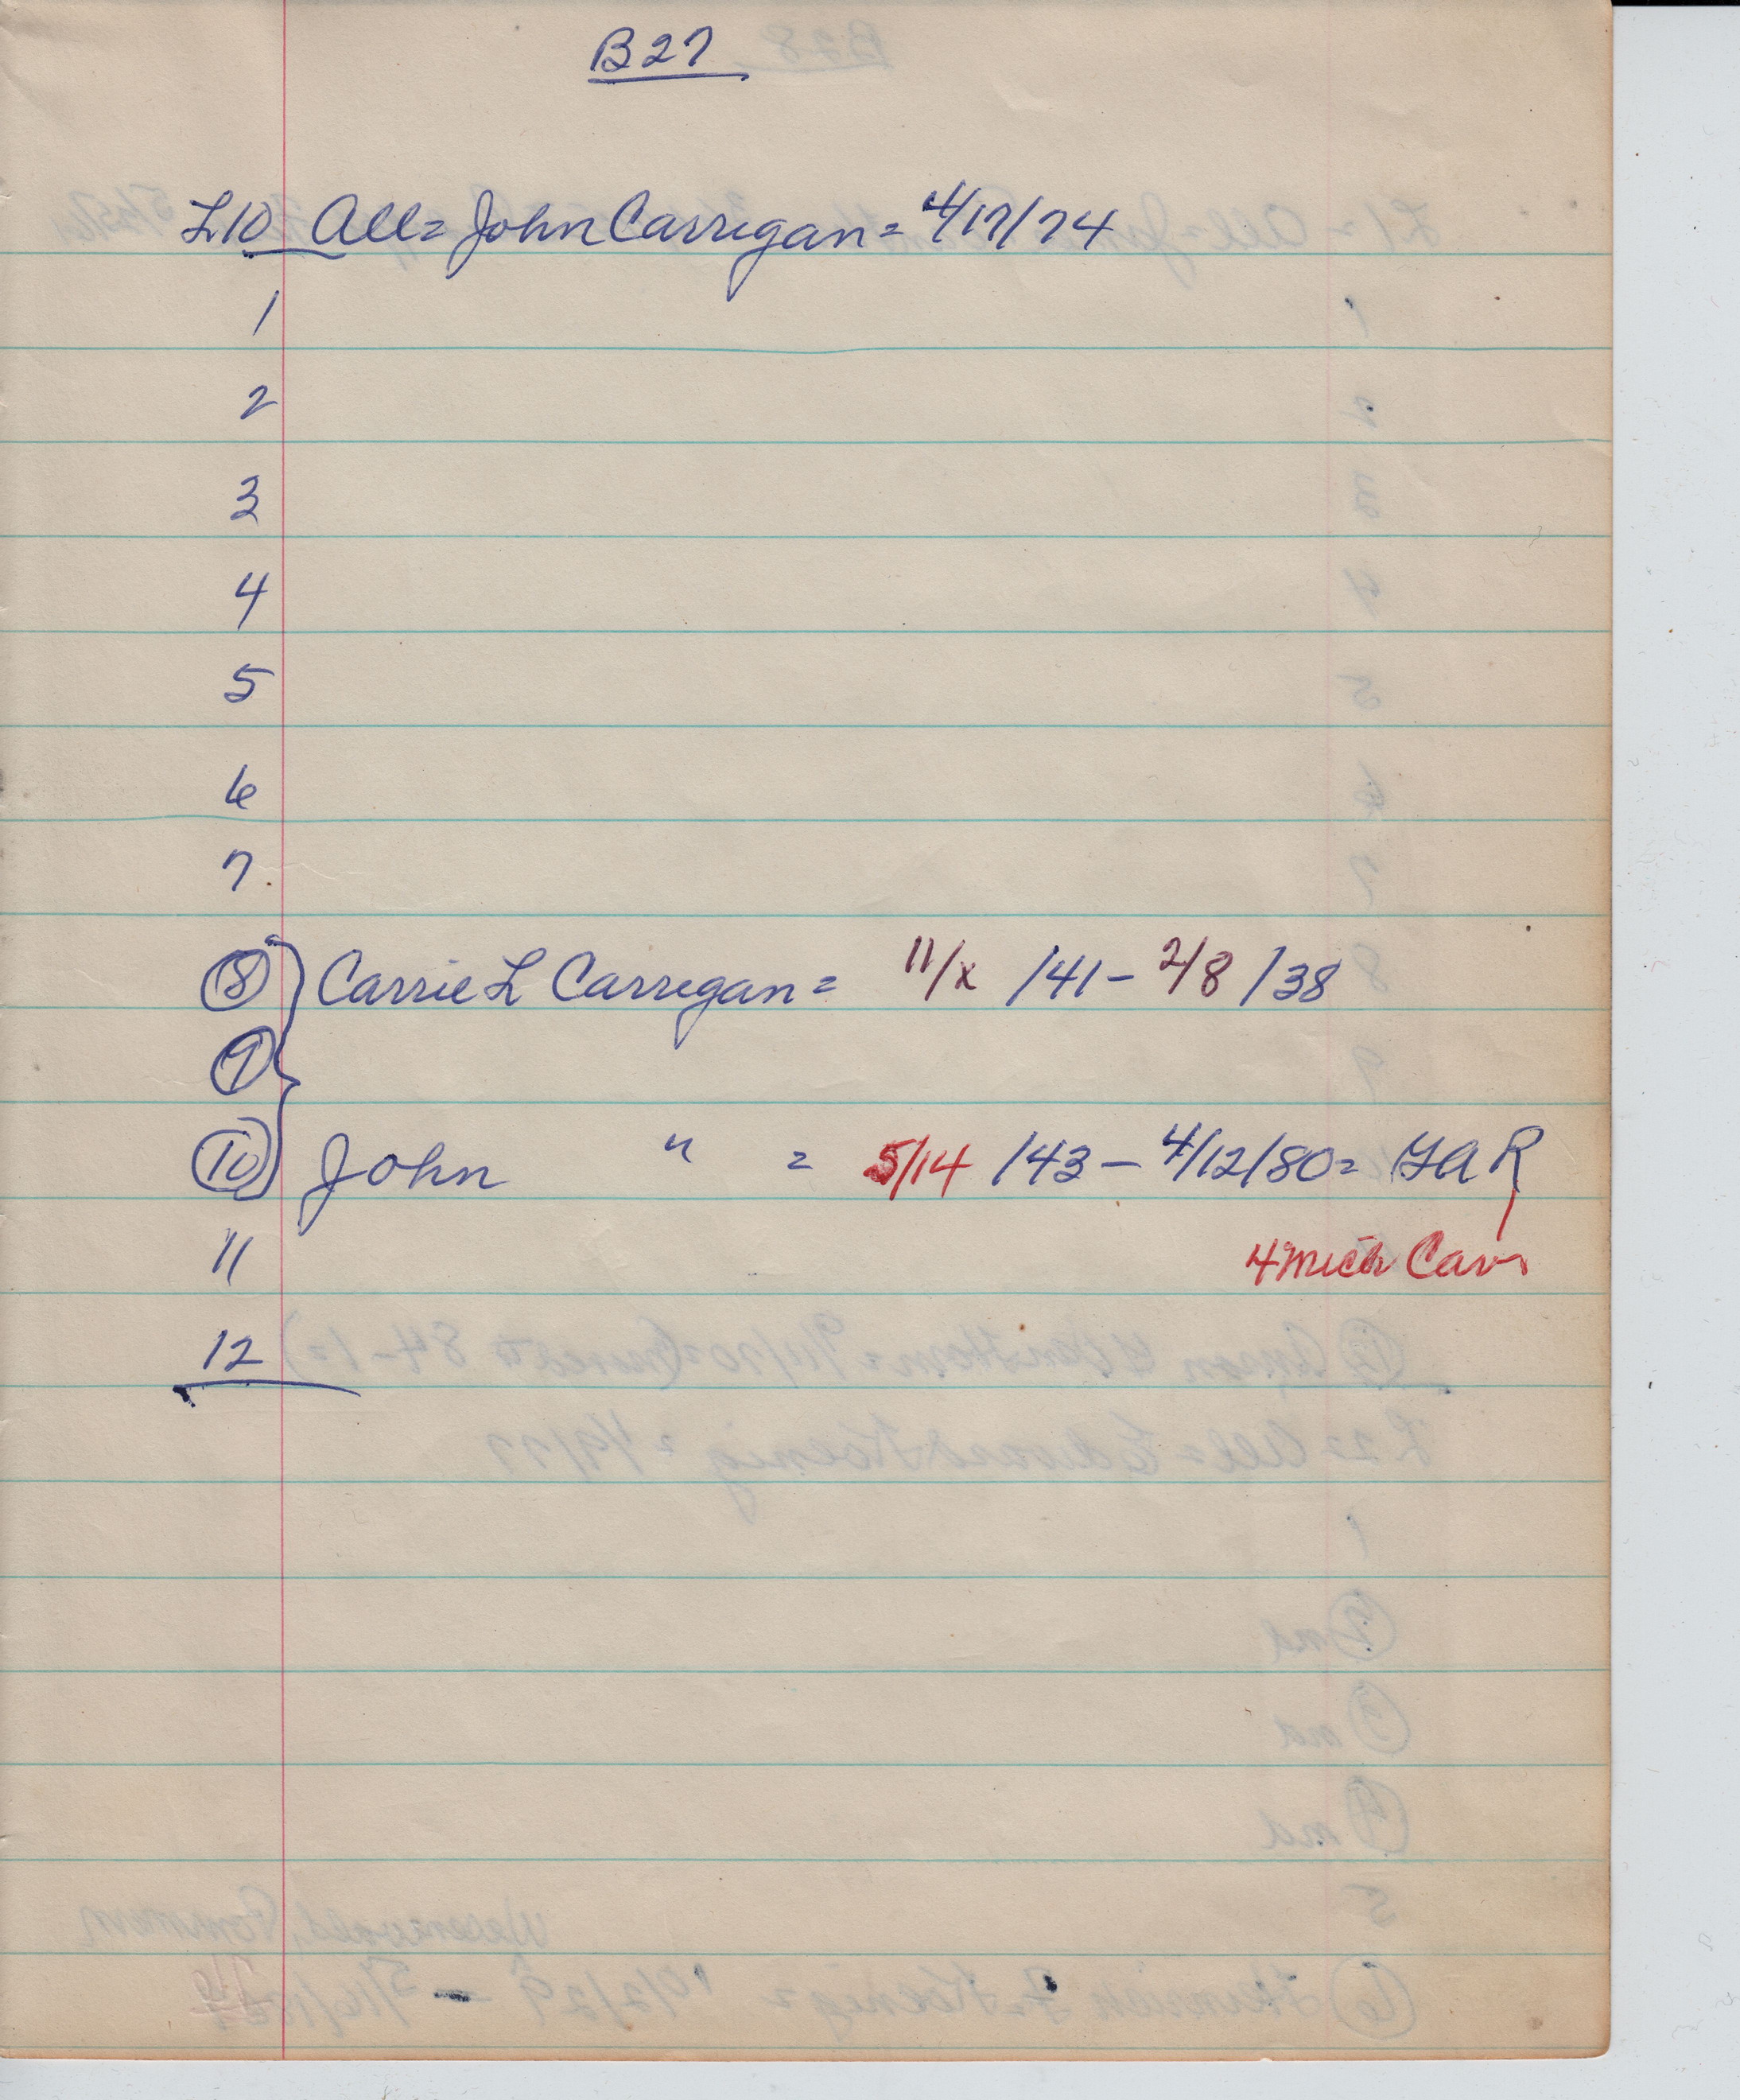 B27
L10 All = John Carrigan = 4/17/74
1
2
3
4
5
6
7
8 Carrie L Carrigan = 11/x /41 - 2/8 /38
9
10 John " = 5/14 /43 - 4/12/80 = GAR
11 4 Mich Cav
12